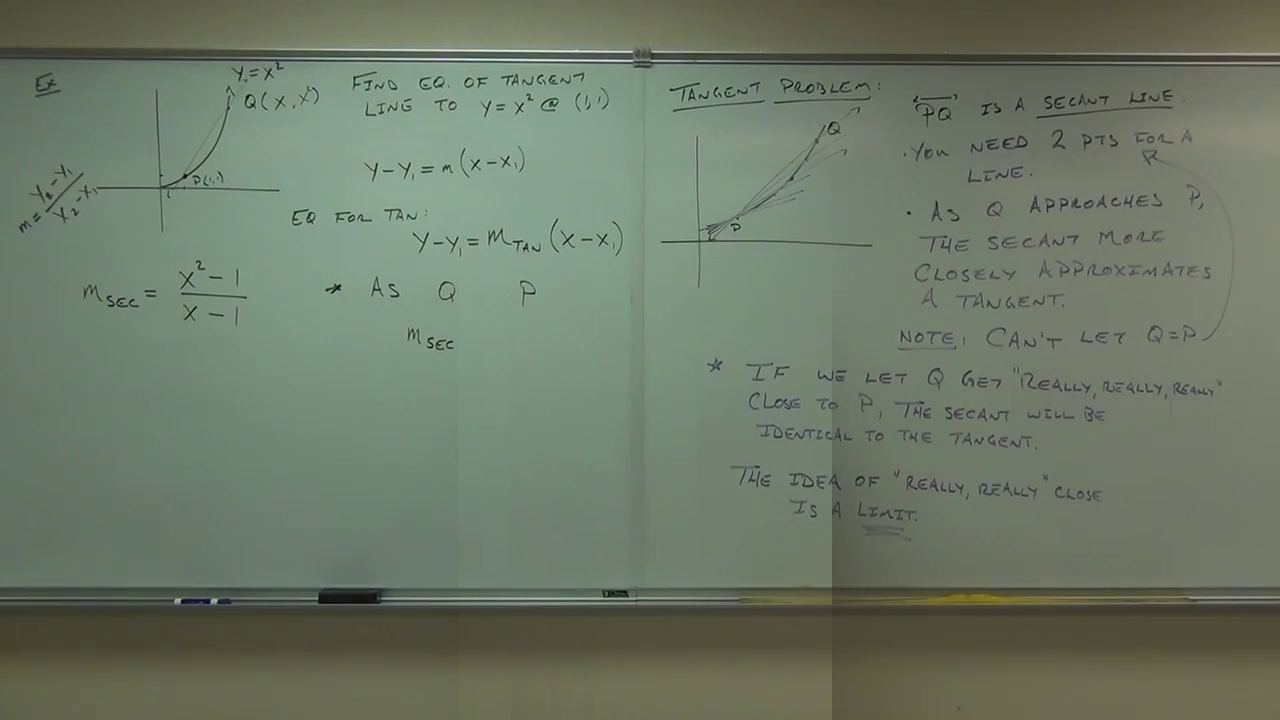 Ex
Y=x²
Q(x, x²)
P(1,1)
m = Y₂-Y₁ / X₂-X₁
FIND EQ. OF TANGENT
LINE TO Y=x² @ (1,1)
Y-Y₁=m(x-x₁)
EQ FOR TAN:
Y-Y₁=m_TAN(x-x₁)
m_SEC = x²-1 / x-1
* AS Q P
m_SEC
TANGENT PROBLEM:
Q
P
PQ IS A SECANT LINE.
· YOU NEED 2 PTS FOR A
LINE.
· AS Q APPROACHES P,
THE SECANT MORE
CLOSELY APPROXIMATES
A TANGENT.
NOTE: CAN'T LET Q=P
* IF WE LET Q GET "REALLY, REALLY, REALLY"
CLOSE TO P, THE SECANT WILL BE
IDENTICAL TO THE TANGENT.
THE IDEA OF "REALLY, REALLY" CLOSE
IS A LIMIT.